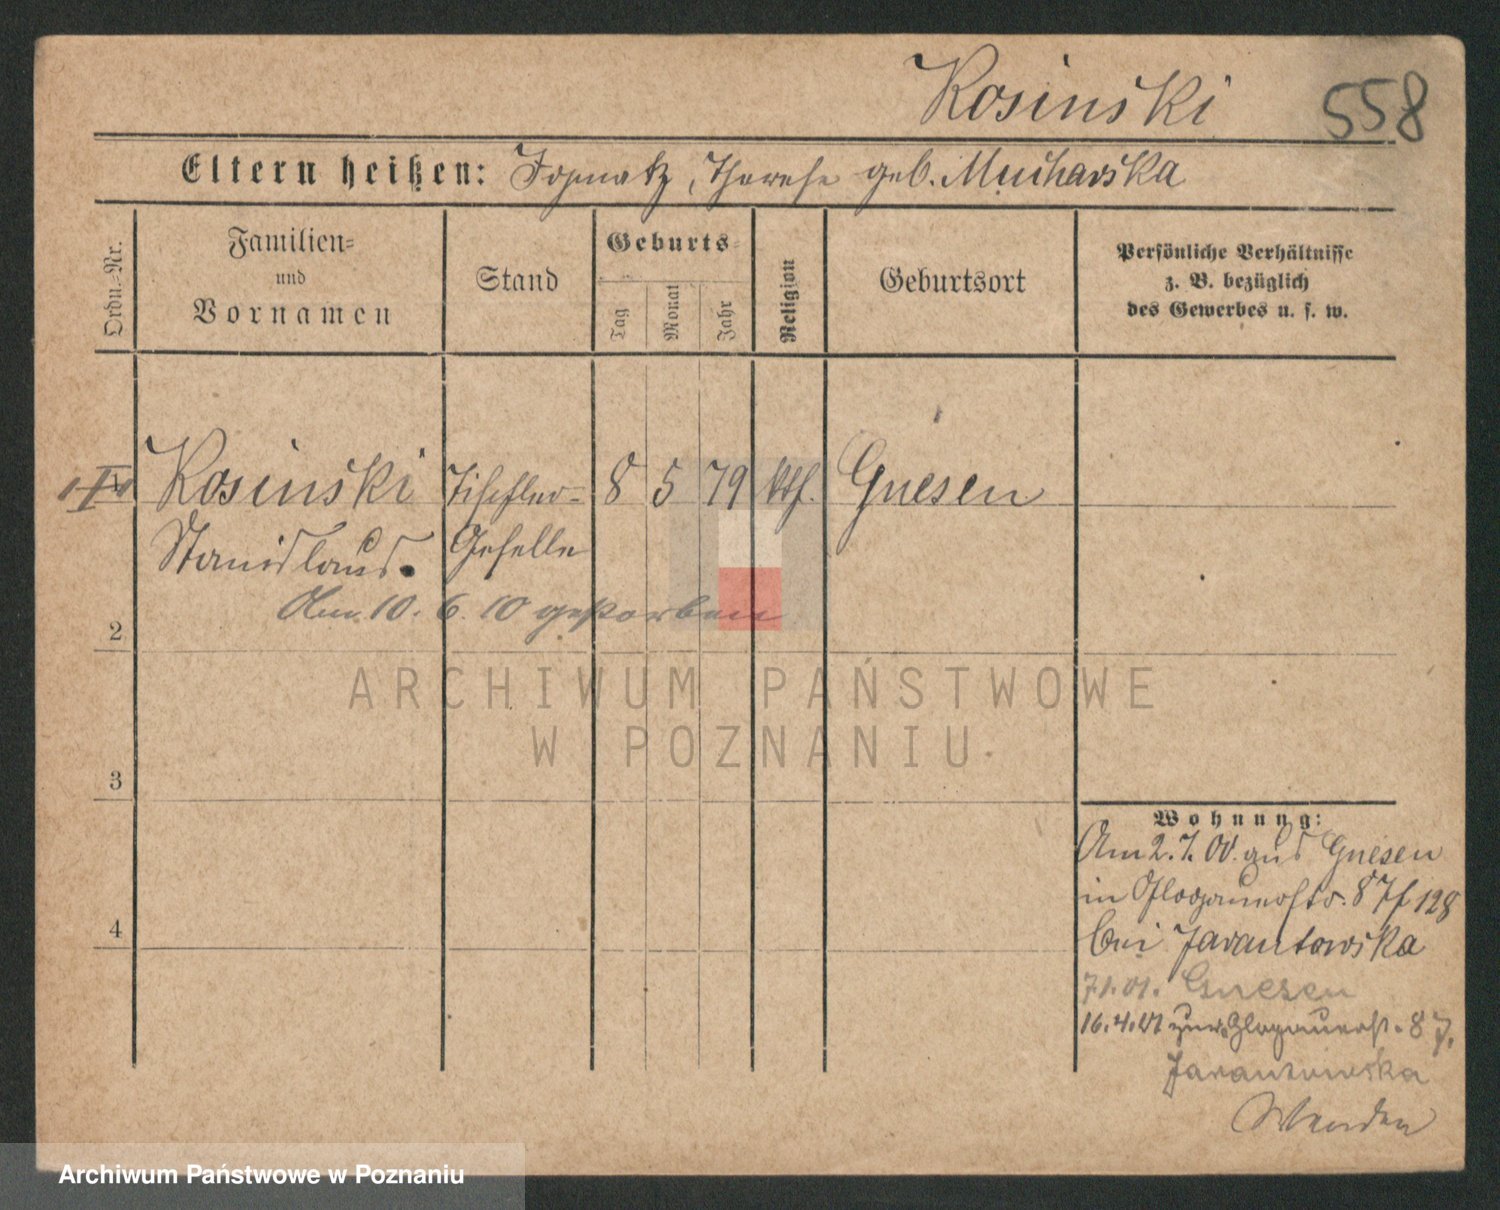 Kosinski
558
Eltern heißen: Ignatz, Therese geb. Mucharska
Ordn.-Nr.
Familien- und Vornamen
Stand
Geburts-
Tag
Monat
Jahr
Religion
Geburtsort
Persönliche Verhältnisse
z. B. bezüglich
des Gewerbes u. s. w.
Kosinski Tischler- 8 5 79 kth. Gnesen
Stanislaus. Geselle
Am 10. 6. 10 gestorben
2
ARCHIWUM PAŃSTWOWE
W POZNANIU
3
4
Wohnung:
Am 2.7.00. aus Gnesen
in Glogauerstr. 87 128
bei Jarantowska
7.1.01. Gnesen
16.4.01 zur. Glogauerst. 87.
Jarantowska
Wenden
Archiwum Państwowe w Poznaniu